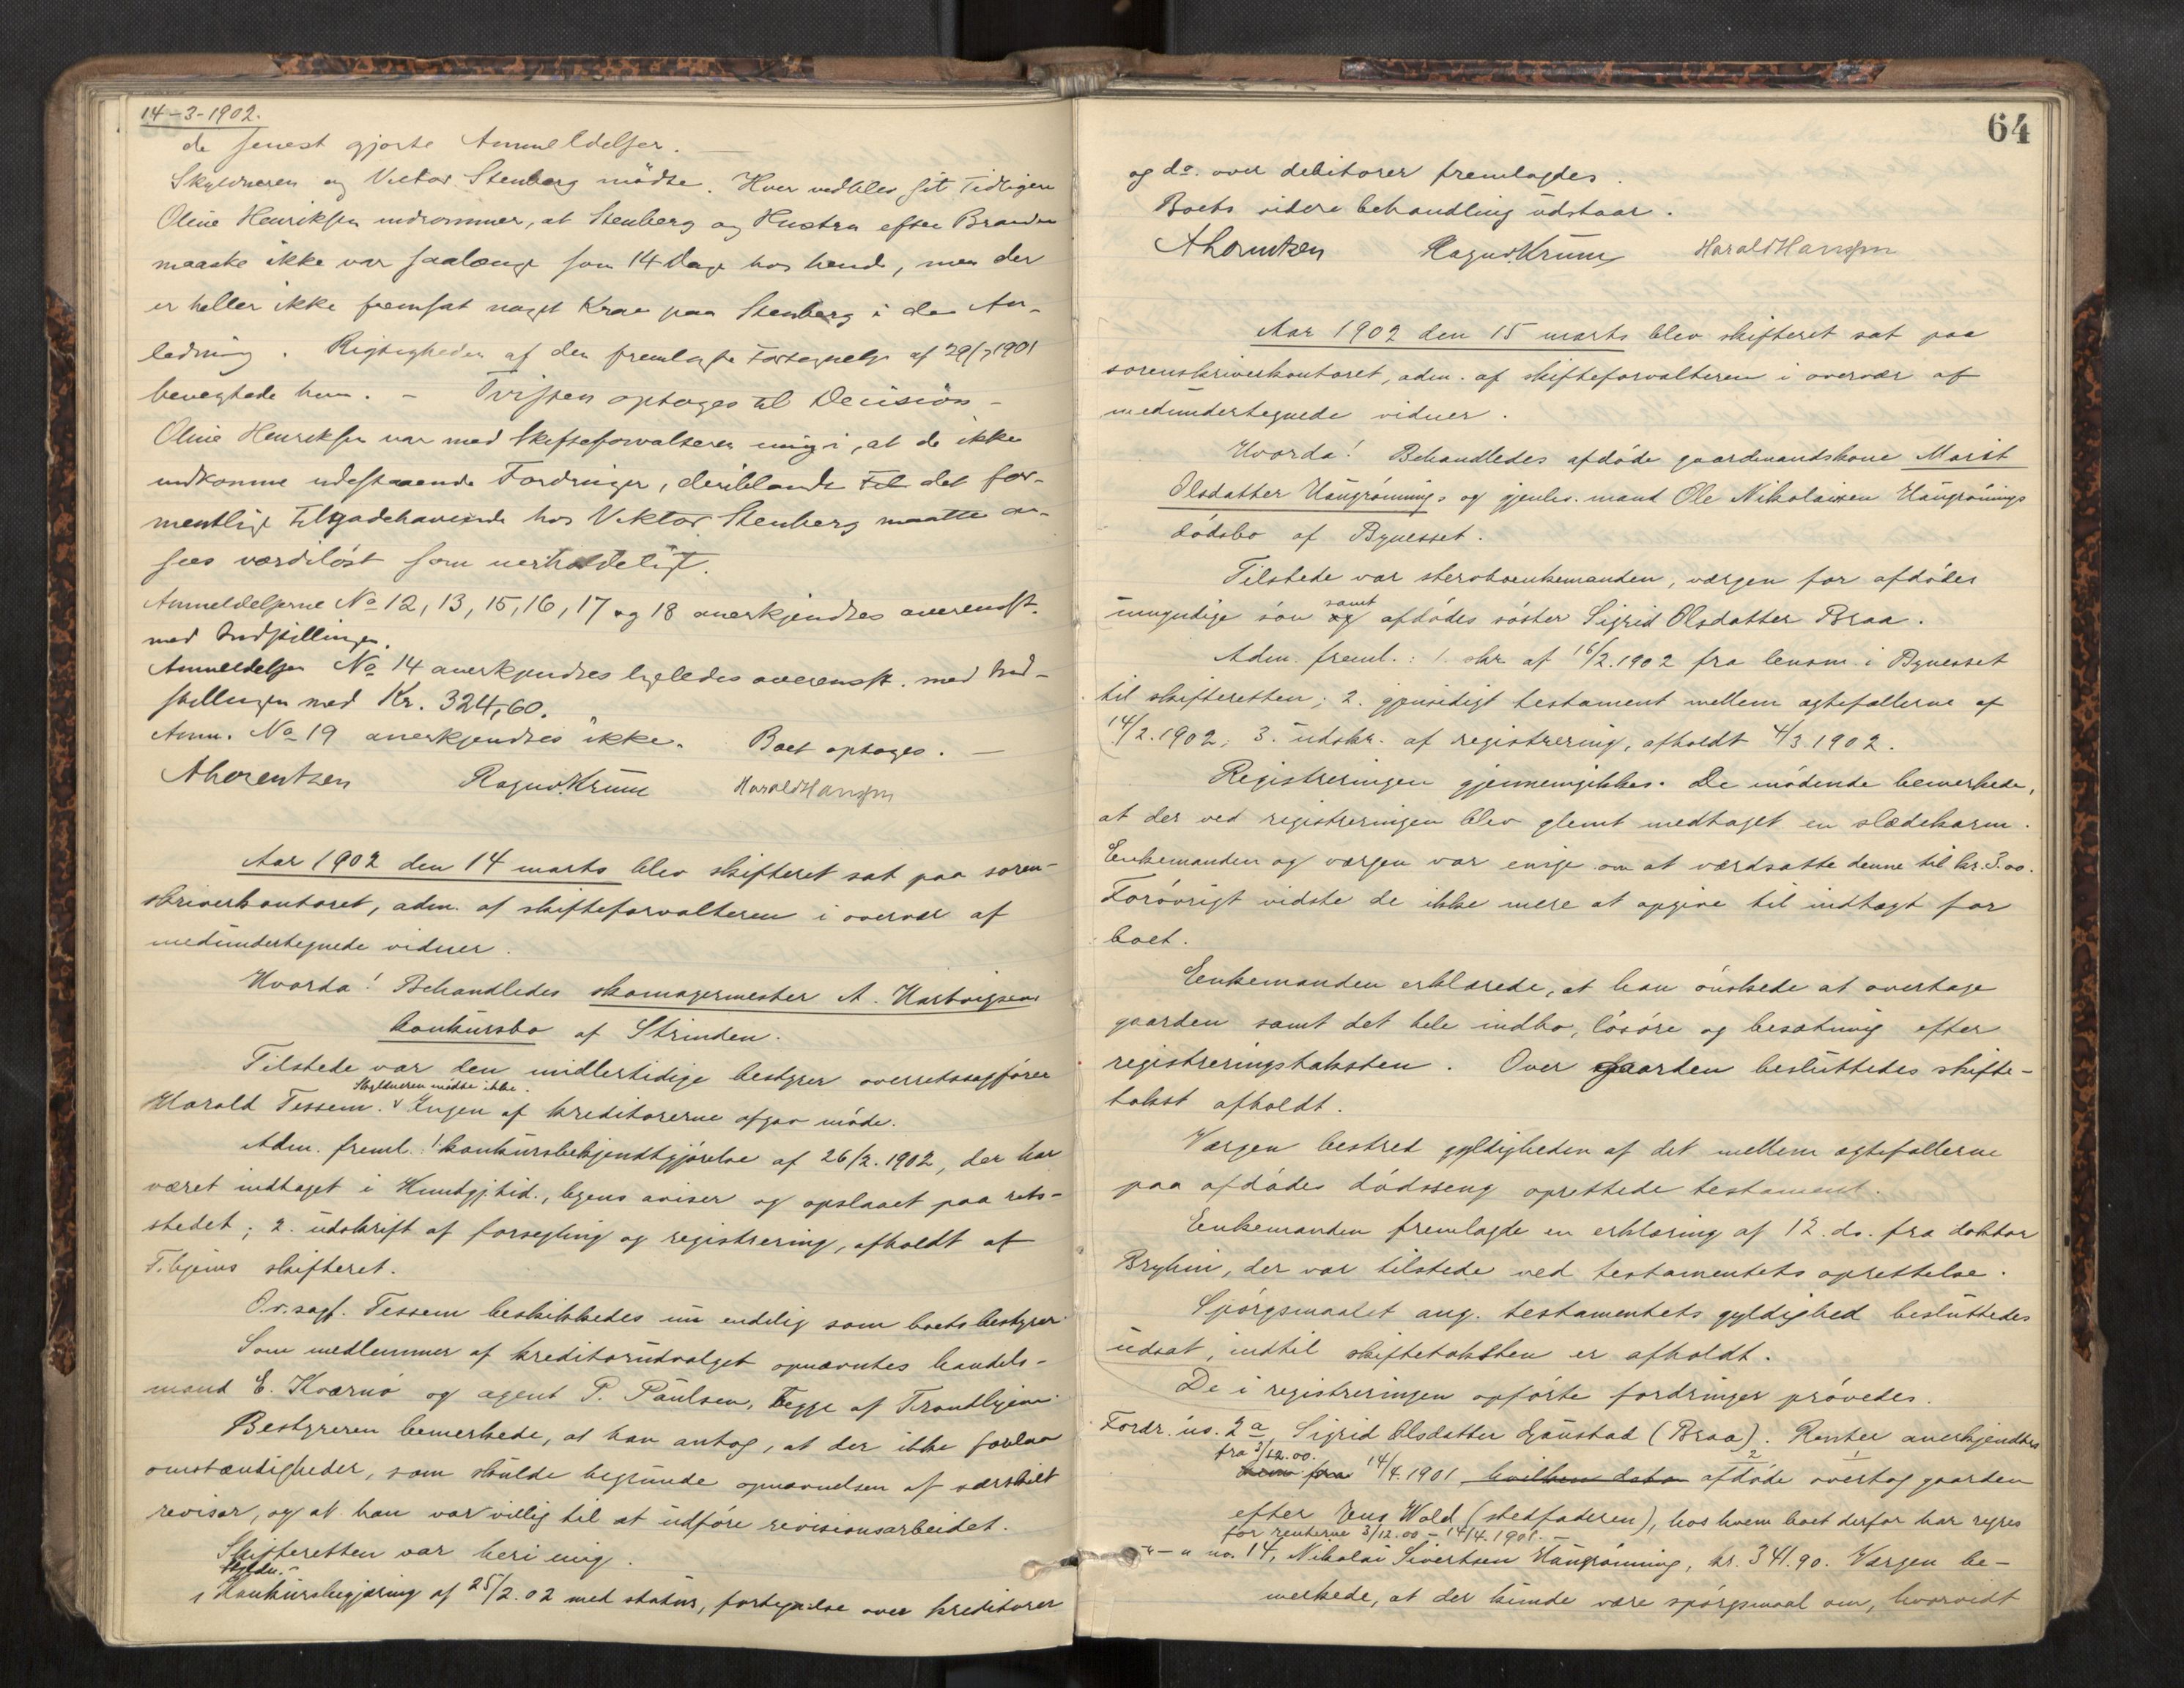 14-3-1902.
de senest gjorte Anmeldelser. —
Skyldneren og Viktor Stenberg mödte. Hver vedblev sit Tidligere
Oline Henriksen indrømmer, at Stenberg og Hustru efter Branden
maaske ikke var saalænge som 14 Dage hos hende, men der
er heller ikke fremsat noget Krav paa Stenberg i den An-
ledning. Rigtigheden af den fremlagte Fortegnelse af 29/7 1901
benegtede hun. – Tvisten optages til Decision –
Oline Henriksen var med Skifteforvalteren enig i, at de ikke
indkomne udestaaende Fordringer, deriblandt det for-
mentlige Tilgodehavende hos Viktor Stenberg maatte an-
sees værdilöst som uerholdeligt.
Anmeldelserne No 12, 13, 15, 16, 17 og 18 anerkjendtes overensst.
med Indstillingen.
Anmeldelsen No 14 anerkjendtes ligeledes overensst. med Ind-
stillingen med Kr. 324,60.
Anm. No 19 anerkjendtes ikke. Boet optages. —
A Lorentzen Ragnv. Krum Harald Hansen
Aar 1902 den 14 marts blev skifteret sat paa soren-
skriverkontoret, adm. af skifteforvalteren i overvær af
medundertegnede vidner.
Hvorda! Behandledes skomagermester A. Hartvigsens
konkursbo af Strinden.
Tilstede var den midlertidige bestyrer overretssagfører
Skyldneren mödte ikke.
Harald Tessem. v Ingen af kreditorerne afgav möde.
Adm. freml.: 1. konkursbekjendtgjörelse af 26/2. 1902, der har
været indtaget i Kundgj.tid., byens aviser og opslaaet paa rets-
stedet; 2. udskrift af forsegling og registrering, afholdt af
T.hjems skifteret.
O.r.sagf. Tessem beskikkedes nu endelig som boets bestyrer.
Som medlemmer af kreditorudvalget opnævntes handels-
mand E. Kværnö og agent P. Paulsen, begge af Trondhjem.
Bestyreren bemerkede, at han antog, at der ikke forelaa
omstændigheder, som skulde begrunde opnævnelsen af særskilt
revisor, og at han var villig til at udföre revisionsarbeidet.
Skifteretten var heri enig.
Skyldn.
Konkursbegjæring af 25/2.02 med status, fortegnelse over kreditorer
64
og do. over debitorer fremlagdes.
Boets videre behandling udstaar.
A Lorentzen Ragnv. Krum Harald Hansen
Aar 1902 den 15 marts blev skifteret sat paa
sorenskriverkontoret, adm. af skifteforvalteren i overvær af
medundertegnede vidner.
Hvorda! Behandledes afdöde gaardmandskone Marit
Olsdatter Haugrönnings og gjenlev. mand Ole Nikolaisen Haugrönnings
dödsbo af Bynesset.
Tilstede var stervboenkemanden, værgen for afdödes
samt
umyndige sön og afdödes söster Sigrid Olsdatter Braa.
Adm. freml.: 1. skr. af 16/2.1902 fra lensm. i Bynesset
til skifteretten; 2. gjensidigt testament mellem ægtefællerne af
14/2.1902; 3. udskr. af registrering, afholdt 4/3 1902.
Registreringen gjennemgikkes. De mödende bemerkede,
at der ved registreringen blev glemt medtaget en slædekarm.
Enkemanden og værgen var enige om at værdsatte denne til kr. 3.00.
Forövrigt vidste de ikke mere at opgive til indtægt for
boet.
Enkemanden erklærede, at han önskede at overtage
gaarden samt det hele indbo, lösöre og besætning efter
registreringstaksten. Over gaarden besluttedes skifte-
takst afholdt.
Værgen bestred gyldigheden af det mellem ægtefællerne
paa afdödes dödsseng oprettede testament.
Enkemanden fremlagde en erklæring af 12. ds. fra doktor
Bryhni, der var tilstede ved testamentets oprettelse.
Spörgsmaalet ang. testamentets gyldighed besluttedes
udsat, indtil skiftetaksten er afholdt.
De i registreringen opförte fordringer prövedes.
Fordr. no. 2a, Sigrid Olsdatter Gaustad (Braa). Renter anerkjendtes
fra 3/12.00. 2 1
fra 14/4.1901 hvilken dato afdöde overtog gaarden
efter Jens Wold (stedfaderen), hos hvem boet derfor har regres
for renterne 3/12.00 – 14/4.1901. —
–"– " no. 14, Nikolai Sivertsen Haugrönning, kr. 341.90. Værgen be-
merkede, at der kunde være spörgsmaal om, hvorvidt